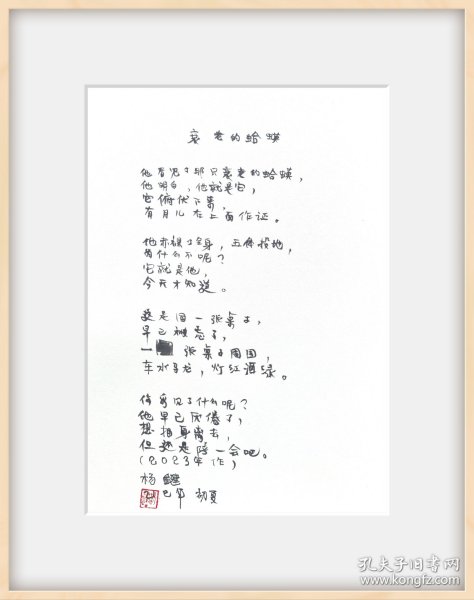 衰老的蛤蟆
他看见了那只衰老的蛤蟆，
他明白，他就是它，
它俯伏下来，
有月儿在上面作证。
他赤裸了全身，五体投地，
为什么不呢？
它就是他，
今天才知道。
这是同一张桌子，
早已被忘了，
一张桌子周围，
车水马龙，灯红酒绿。
你看见了什么呢？
他早已厌倦了，
想抽身离去，
但还是陪一会吧。
（2023年作）
杨
巳年 初夏
孔夫子旧书网
www.kongfz.com